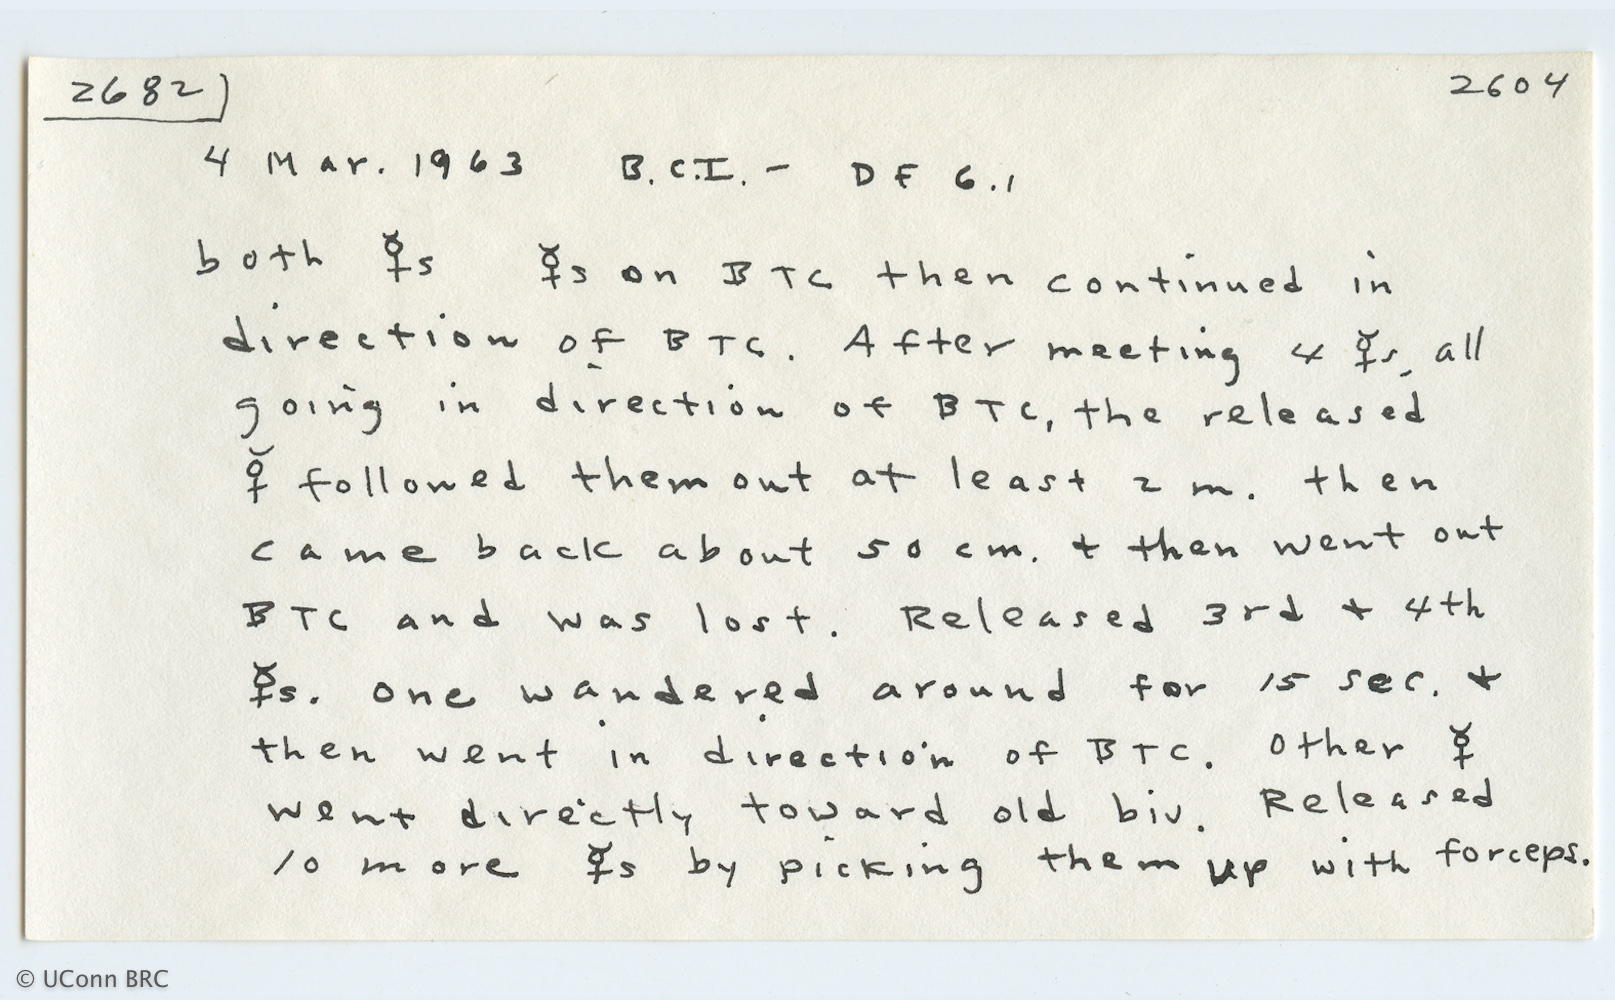 2682
2604
4 Mar. 1963 B.C.I. - DF 6.1
both ☿s ☿s on BTC then continued in
direction of BTC. After meeting 4 ☿s, all
going in direction of BTC, the released
☿ followed them out at least 2 m. then
came back about 50 cm. + then went out
BTC and was lost. Released 3rd + 4th
☿s. One wandered around for 15 sec. +
then went in direction of BTC. Other ☿
went directly toward old biv. Released
10 more ☿s by picking them up with forceps.
© UConn BRC